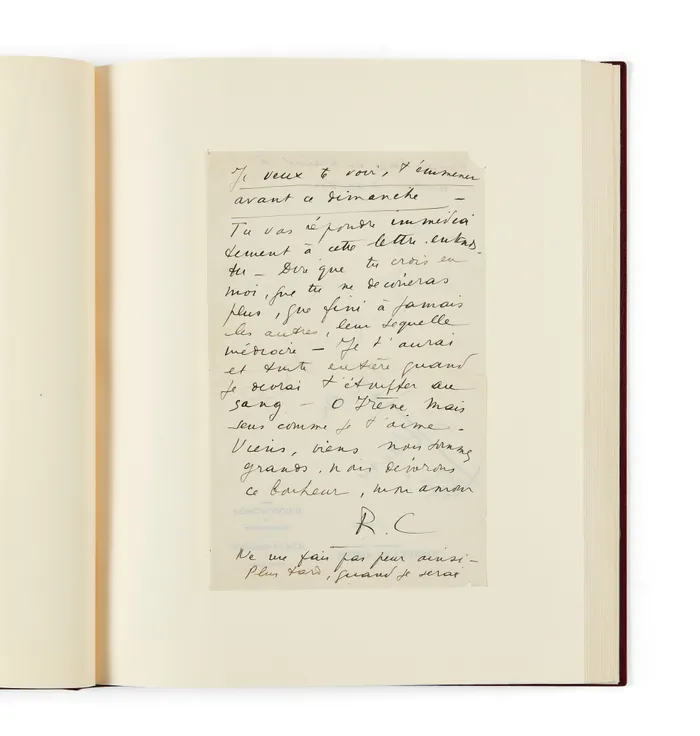 Je veux te voir, t'emmener
avant ce dimanche —
Tu vas répondre immédia
tement à cette lettre. entends-
tu — Dire que tu crois en
moi, que tu ne
plus, que fini à jamais
les autres, leur sequelle
médiocre — Je t'aurai
et toute entière quand
je devrai t'étouffer au
sang — O Irène, mais
sens comme je t'aime.
Viens, viens nous sommes
grands, nous
ce bonheur, mon amour
R. C
Ne me fais pas peur ainsi —
Plus tard, quand je serai